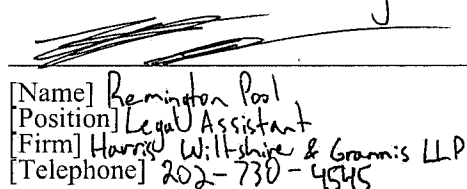 [Name] Remington Pool
[Position] Legal Assistant
[Firm] Harris Wiltshire & Grannis LLP
[Telephone] 202-730-4545